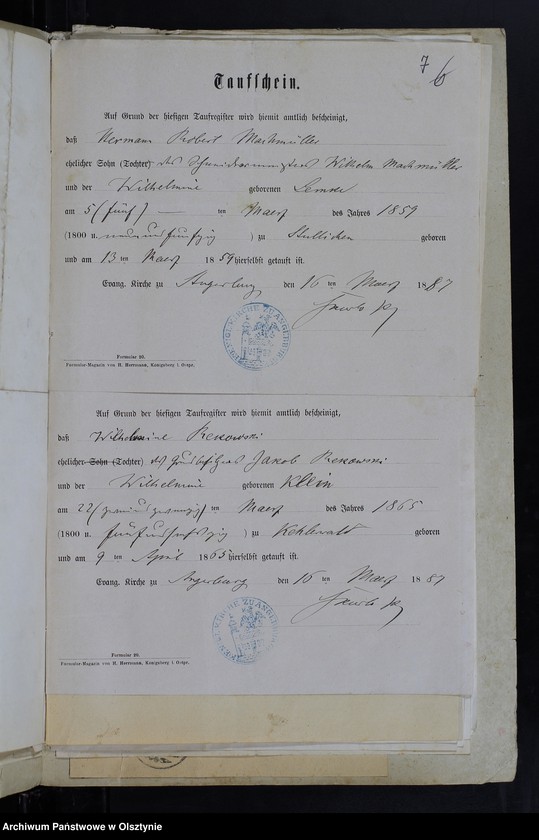 7 6
Taufschein.
Auf Grund der hiesigen Taufregister wird hiemit amtlich bescheinigt,
daß Hermann Robert Machmüller
ehelicher Sohn (Tochter) des Schneidermeisters Wilhelm Machmüller
und der Wilhelmine geborenen
am 5 (fünf) ten Maerz des Jahres 1859
(1800 u. neunundfünfzig ) zu Stullichen geboren
und am 13 ten Maerz 1859 hierselbst getauft ist.
Evang. Kirche zu Angerburg den 16 ten Maerz 1887
EV. KIRCHE ZU ANGERBURG
Formular 20.
Formular-Magazin von H. Herrmann, Königsberg i. Ostpr.
Auf Grund der hiesigen Taufregister wird hiemit amtlich bescheinigt,
daß Wilhelmine Rekowski
ehelicher Sohn (Tochter) des Grundbesitzers Jakob Rekowski
und der Wilhelmine geborenen Klein
am 22 (zwei und zwanzig) ten Maerz des Jahres 1865
(1800 u. fünfundsechszig ) zu Kehlerwald geboren
und am 9 ten April 1865 hierselbst getauft ist.
Evang. Kirche zu Angerburg den 16 ten Maerz 1887
KIRCHE ZU ANGERBURG
Formular 20.
Formular-Magazin von H. Herrmann, Königsberg i. Ostpr.
Archiwum Państwowe w Olsztynie